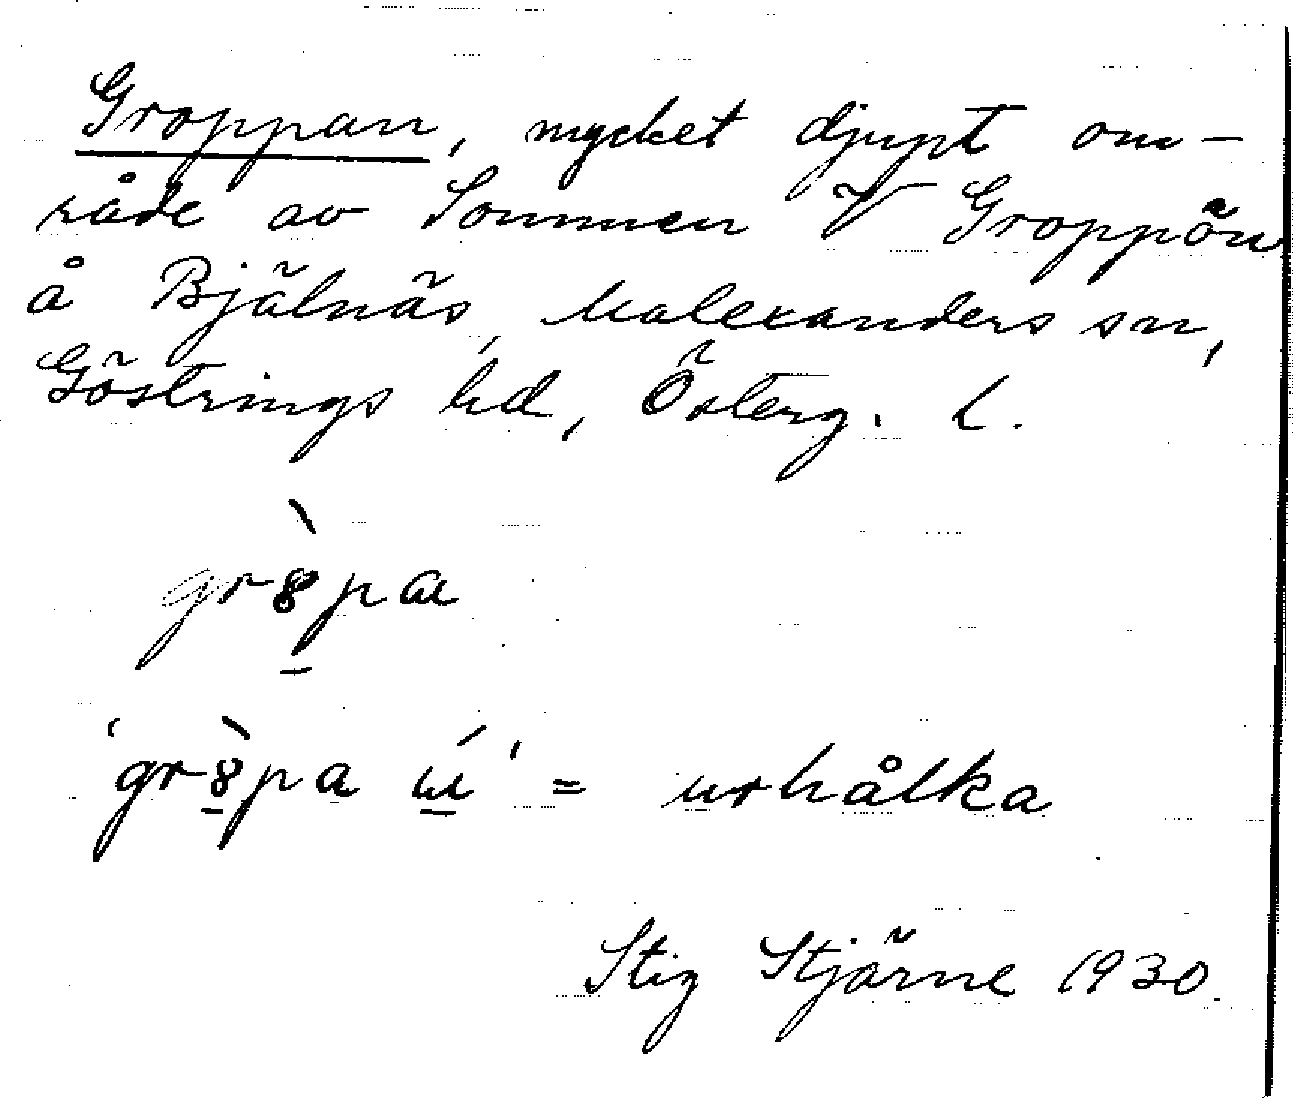 Groppan, mycket djupt om-
råde av Sommen V Groppön
å Bjälnäs, Malexanders sn,
Göstrings hd, Österg. l.
gr8̀pa
'gr8̀pa ú' = urhålka
Stig Stjärne 1930.